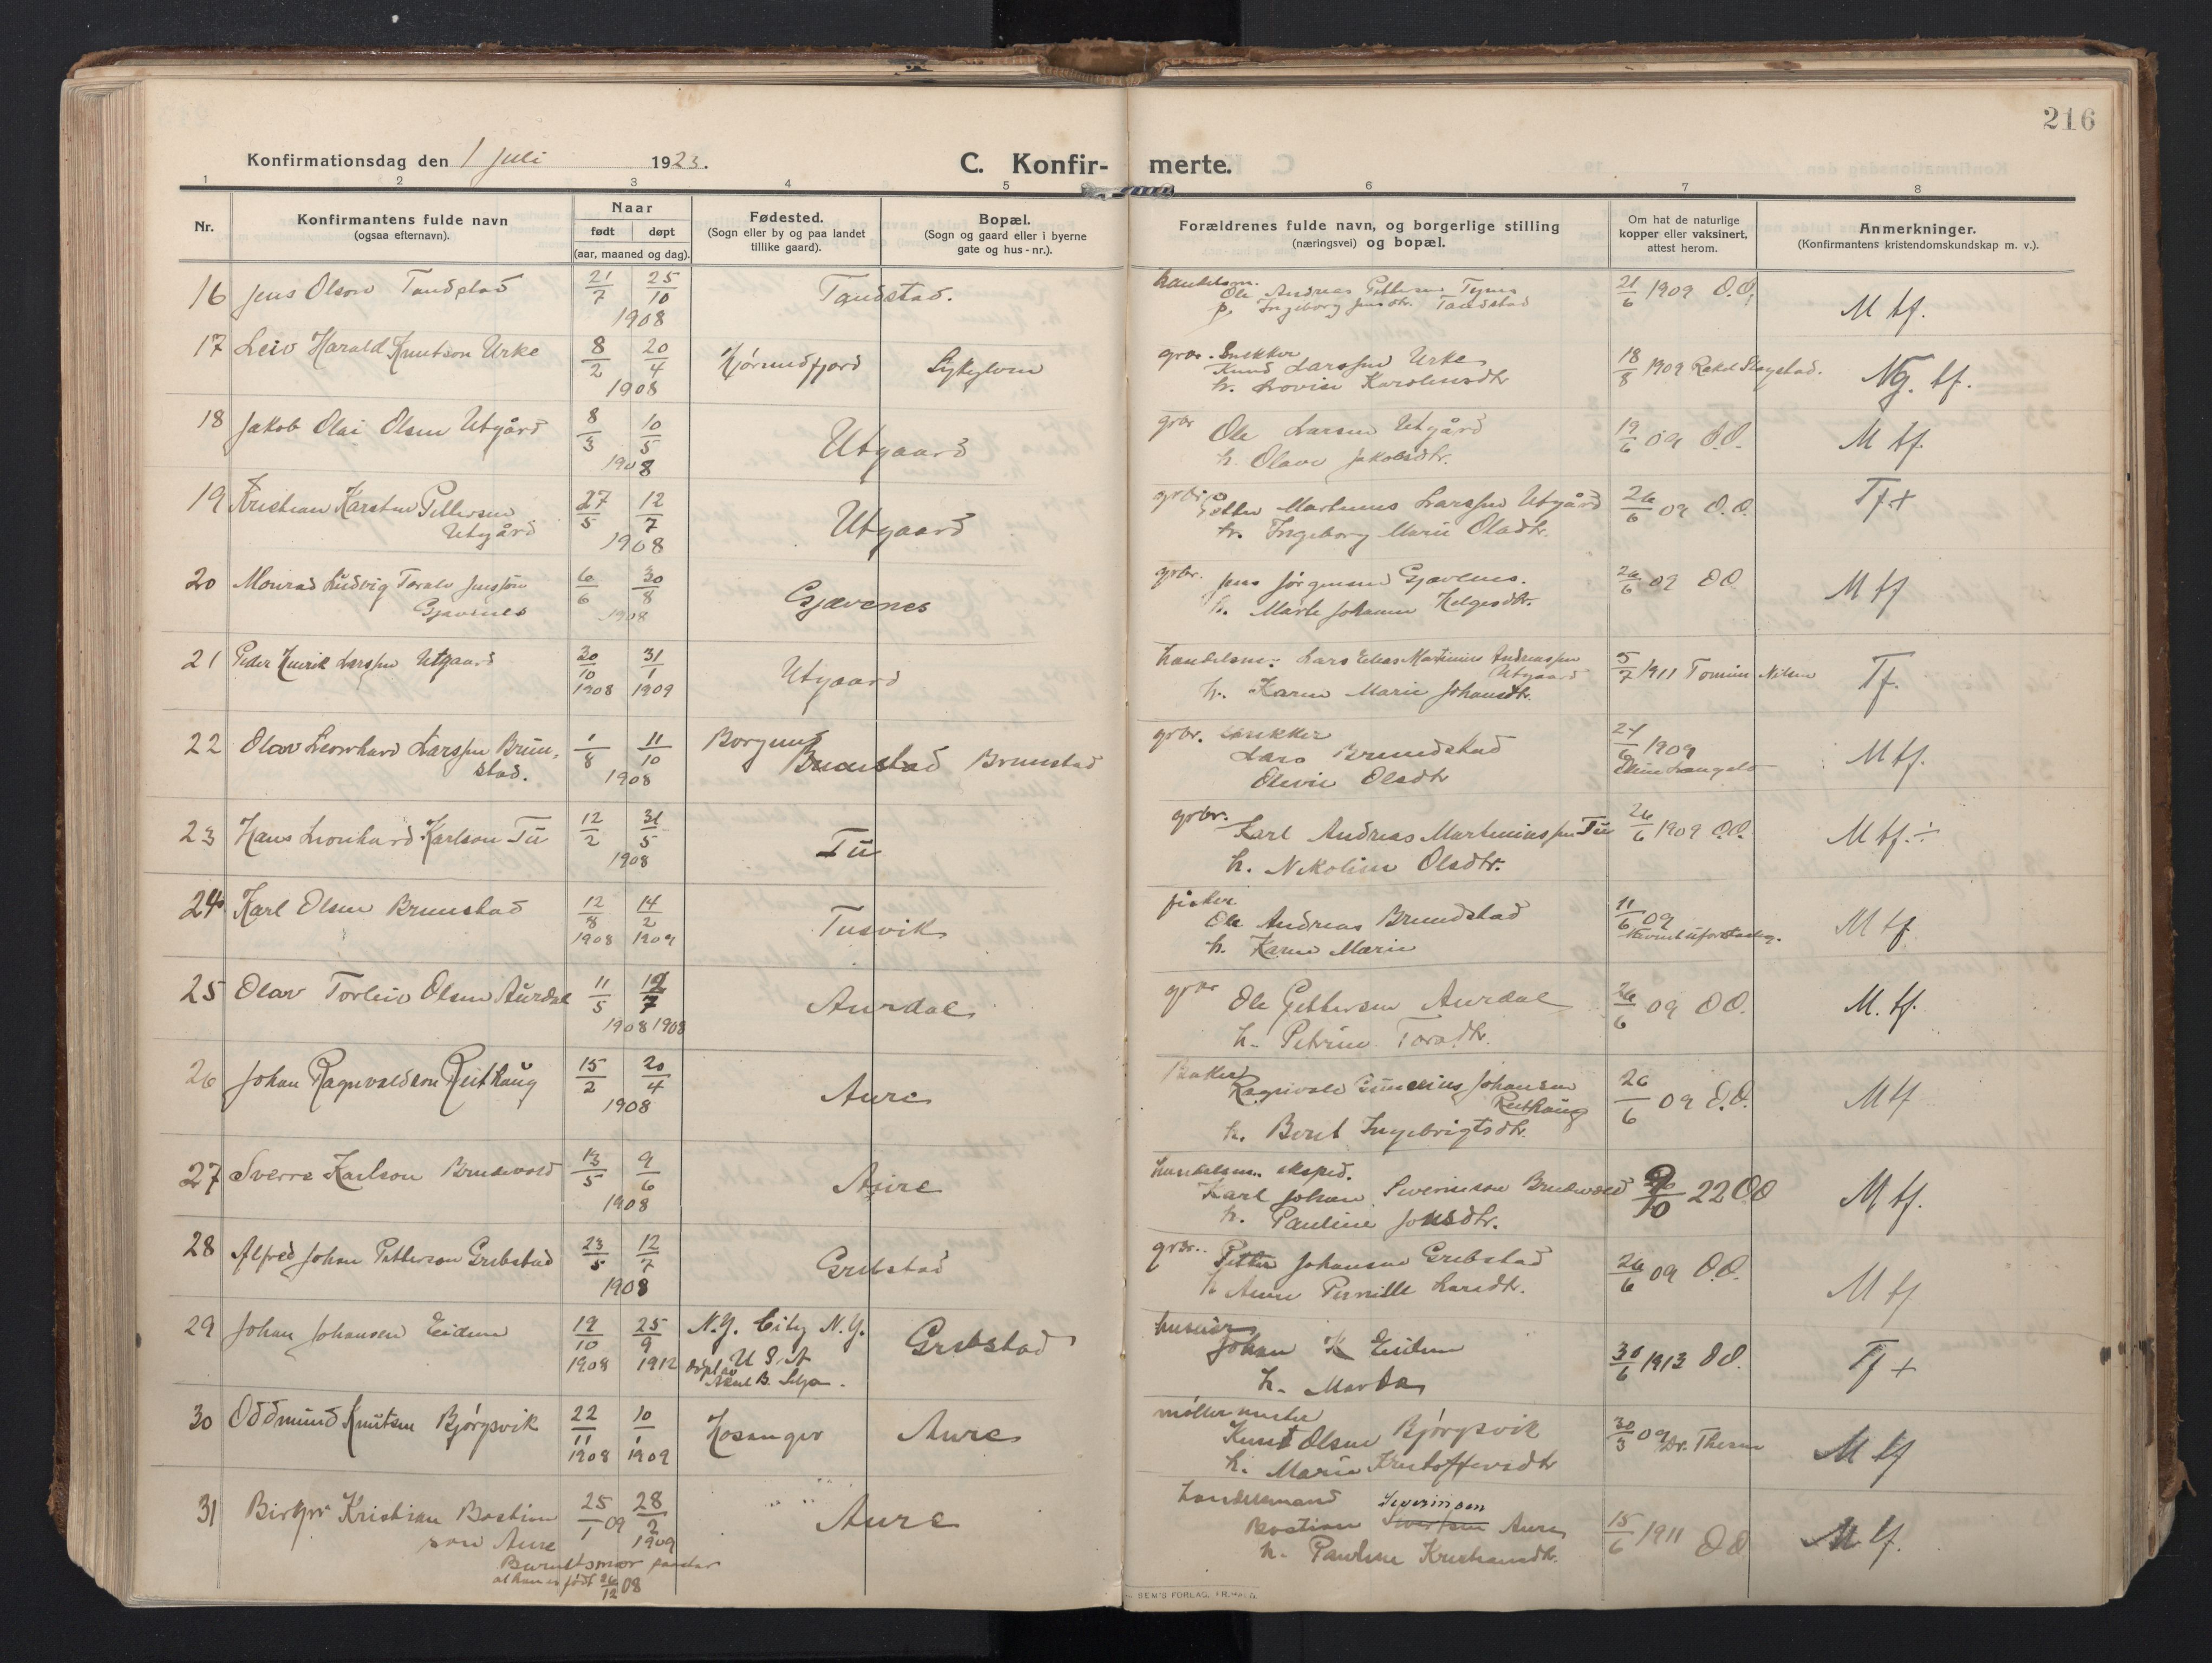 216
Konfirmationsdag den 1 Juli 1923.
C. Konfir- merte.
1 2 3 4 5 6 7 8
Nr.
Konfirmantens fulde navn
(ogsaa efternavn).
Naar
født døpt
(aar, maaned og dag).
Fødested.
(Sogn eller by og paa landet
tillike gaard).
Bopæl.
(Sogn og gaard eller i byerne
gate og hus-nr.).
Forældrenes fulde navn, og borgerlige stilling
(næringsvei) og bopæl.
Om hat de naturlige
kopper eller vaksinert,
attest herom.
Anmerkninger.
(Konfirmantens kristendomskundskap m. v.).
16 Jens Olson Tandstad 21/7 25/10 Tandstad. handelsm. Ole Andreas Pettersen Tynes 21/6 1909 O.O. M tf.
1908 Ingeborg Jensdtr. Tandstad
17 Leiv Harald Knutson Urke 8/2 20/4 Hjørundfjord Sykylven grbr. Snekker Knud Larssen Urke 18/8 1909 Rakel Slogstad. Mg. tf.
1908 h. Lovise Karolusdtr
18 Jakob Olai Olsen Utgård 8/3 10/5 Utgaard grbr Ole Larsen Utgård 19/6 09 O.O. M tf.
1908 h. Olave Jakobsdtr.
19 Kristian Karsten Pettersen 27/5 12/7 Utgaard grbr. Petter Martinus Larssen Utgård 26/6 09 O.O. Tf +
Utgård 1908 h. Ingeborg Marie Oladtr.
20 Monrad Ludvig Toralv Jenssøn 6/6 30/8 Gjævenes grbr. Jens Jörgensen Gjævenes. 26/6 09 OO M tf
Gjævenes 1908 h. Marte Johanne Helgesdtr.
21 Peder Henrik Larssen Utgaard 30/10 31/1 Utgaard handelsm. Lars Elias Martinus Andreassen 5/7 1911 Tomine Nilsen Tf.
1908 1909 Utgaard
h. Karen Marie Johansdtr.
22 Olav Leonhard Larssen Brun- 1/8 11/10 Borgund Brunstad grbr. snekker 24/6 1909 M tf.
stad. 1908 Brunstad Lars Brundstad
Olevie Olsdtr
23 Hans Leonhard Karlson Tu 12/2 31/5 Tu grbr. Karl Andreas Martiniussen Tu 26/6 1909 O.O. M tf. ÷
1908 h. Nikoline Olsdtr.
24 Karl Olsen Brunstad 12/8 14/2 Tusvik fisker Ole Andreas Brundstad 11/6 09 M tf
1908 1909 h. Karen Marie
25 Olav Torleiv Olsen Aurdal 11/5 12/7 Aurdal grbr Ole Pettersen Aurdal 26/6 09 OO. M. tf.
1908 1908 h. Petrine Toradtr.
26 Johan Ragnvaldson Reithaug 15/2 20/4 Aure Baker Ragnvald Gunerius Johansen 26/6 09 O.O. M tf
1908 Reithaug
h. Beret Ingebrigtsdtr.
27 Sverre Karlson Brudevold 13/5 9/6 Aure handelsm. eksped. 22 OO M tf.
1908 Karl Johan Severinson Brudevold
h. Pauline Jonsdtr.
28 Alfred Johan Petterson Grebstad 23/5 12/7 Grebstad grbr. Petter Johansen Grebstad 26/6 09 O.O. M tf
1908 h Anne Pernille Larsdtr.
29 Johan Johansen Eidem 19/10 25/9 N.Y. City N.Y. Grebstad huseier Johan K Eidem 30/6 1913 OO. Tf +
1908 1912 U S A h. Marta
døpt av
30 Oddmund Knutsen Bjørgsvik 22/11 10/1 Hosanger Aure møllermester Knut Olsen Bjørgsvik 30/3 09 Dr. Thesen M tf
1908 1909 h. Marie Kristoffersdtr
31 Birger Kristian Bastian 25/1 09 28/2 Aure handelsmand Severinsen 15/6 1911 OO M tf.
son Aure 1909 Bastian Aure
h. Pauline Kristiansdtr.
at han er født 26/12 08
SEM'S FORLAG, FR.HALD.